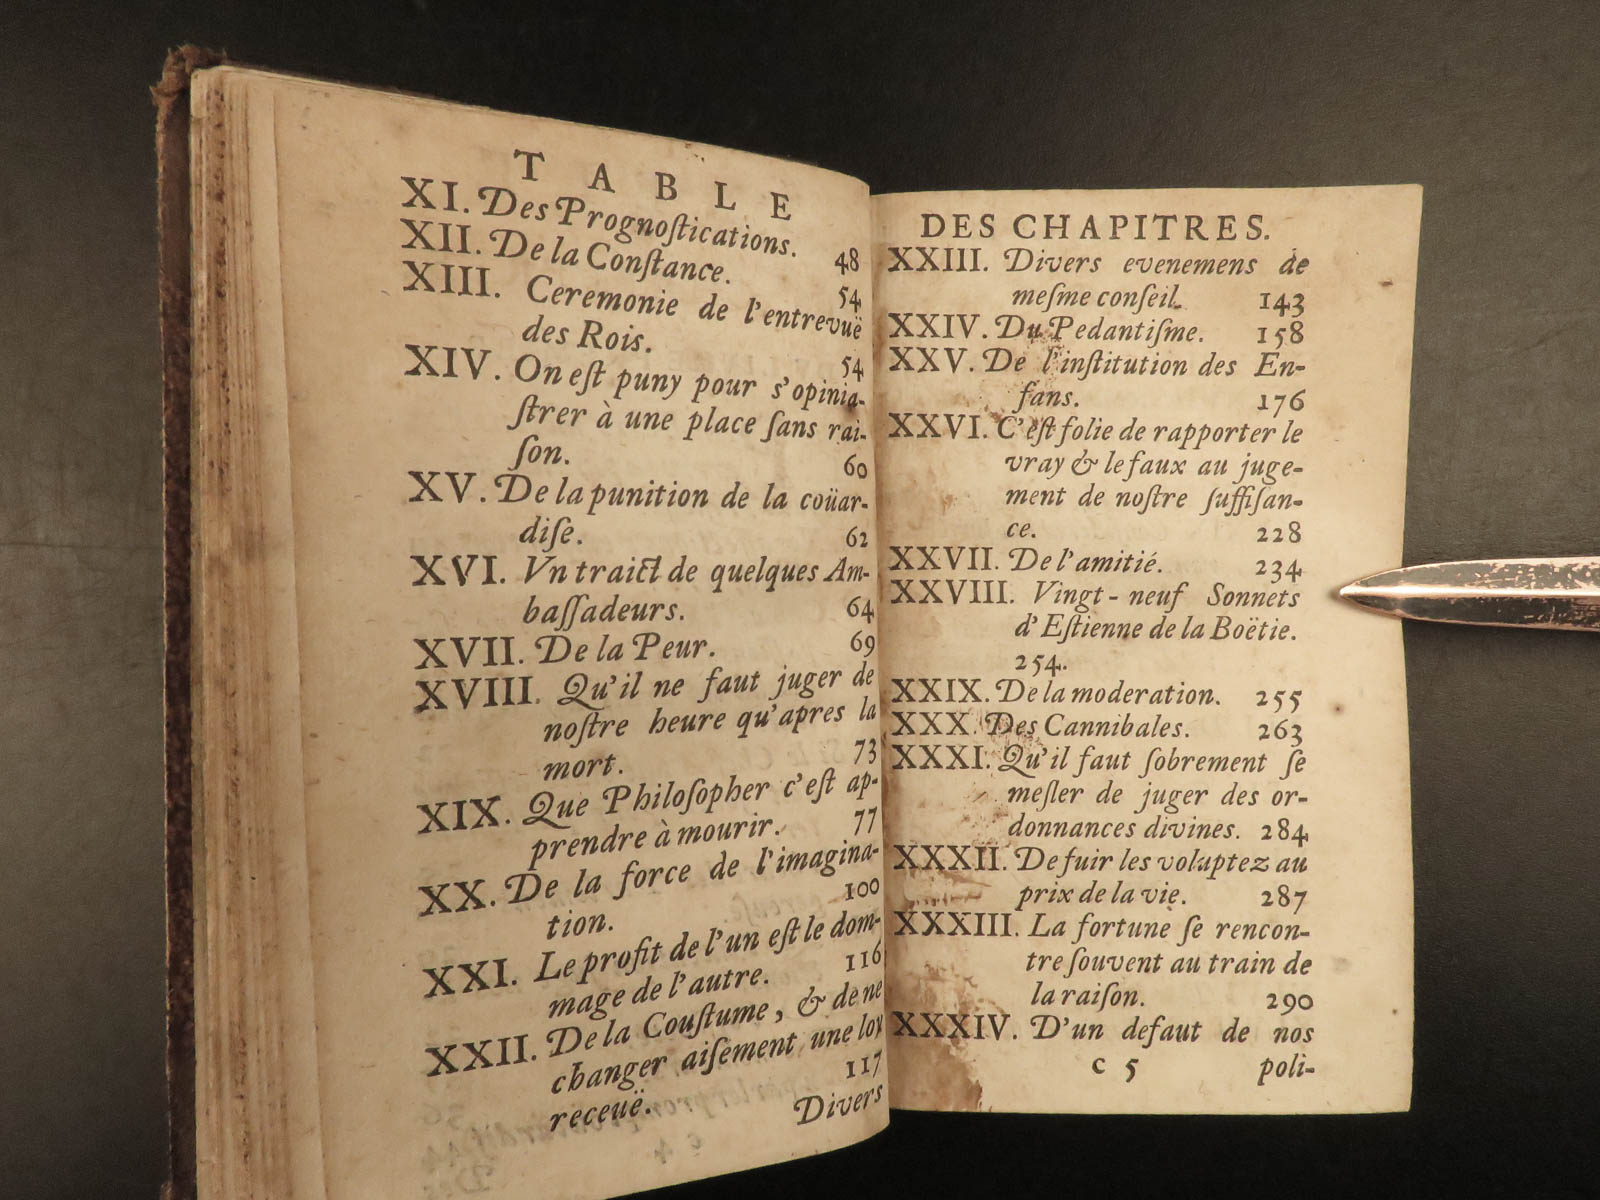 TABLE
XI. Des Prognoſtications. 48
XII. De la Conſtance. 54
XIII. Ceremonie de l'entrevuë
des Rois. 54
XIV. On eſt puny pour s'opinia-
ſtrer à une place ſans rai-
ſon. 60
XV. De la punition de la coüar-
diſe. 62
XVI. Vn traict de quelques Am-
baſſadeurs. 64
XVII. De la Peur. 69
XVIII. Qu'il ne faut juger de
noſtre heure qu'apres la
mort. 73
XIX. Que Philoſopher c'eſt ap-
prendre à mourir. 77
XX. De la force de l'imagina-
tion. 100
XXI. Le profit de l'un eſt le dom-
mage de l'autre. 116
XXII. De la Couſtume, & de ne
changer aiſement une loy
receuë. 117
Divers
DES CHAPITRES.
XXIII. Divers evenemens de
meſme conſeil. 143
XXIV. Du Pedantiſme. 158
XXV. De l'inſtitution des En-
fans. 176
XXVI. C'eſt folie de rapporter le
vray & le faux au juge-
ment de noſtre ſuffiſan-
ce. 228
XXVII. De l'amitié. 234
XXVIII. Vingt-neuf Sonnets
d'Eſtienne de la Boëtie.
254.
XXIX. De la moderation. 255
XXX. Des Cannibales. 263
XXXI. Qu'il faut ſobrement ſe
meſler de juger des or-
donnances divines. 284
XXXII. De fuir les voluptez au
prix de la vie. 287
XXXIII. La fortune ſe rencon-
tre ſouvent au train de
la raiſon. 290
XXXIV. D'un defaut de nos
c 5 poli-